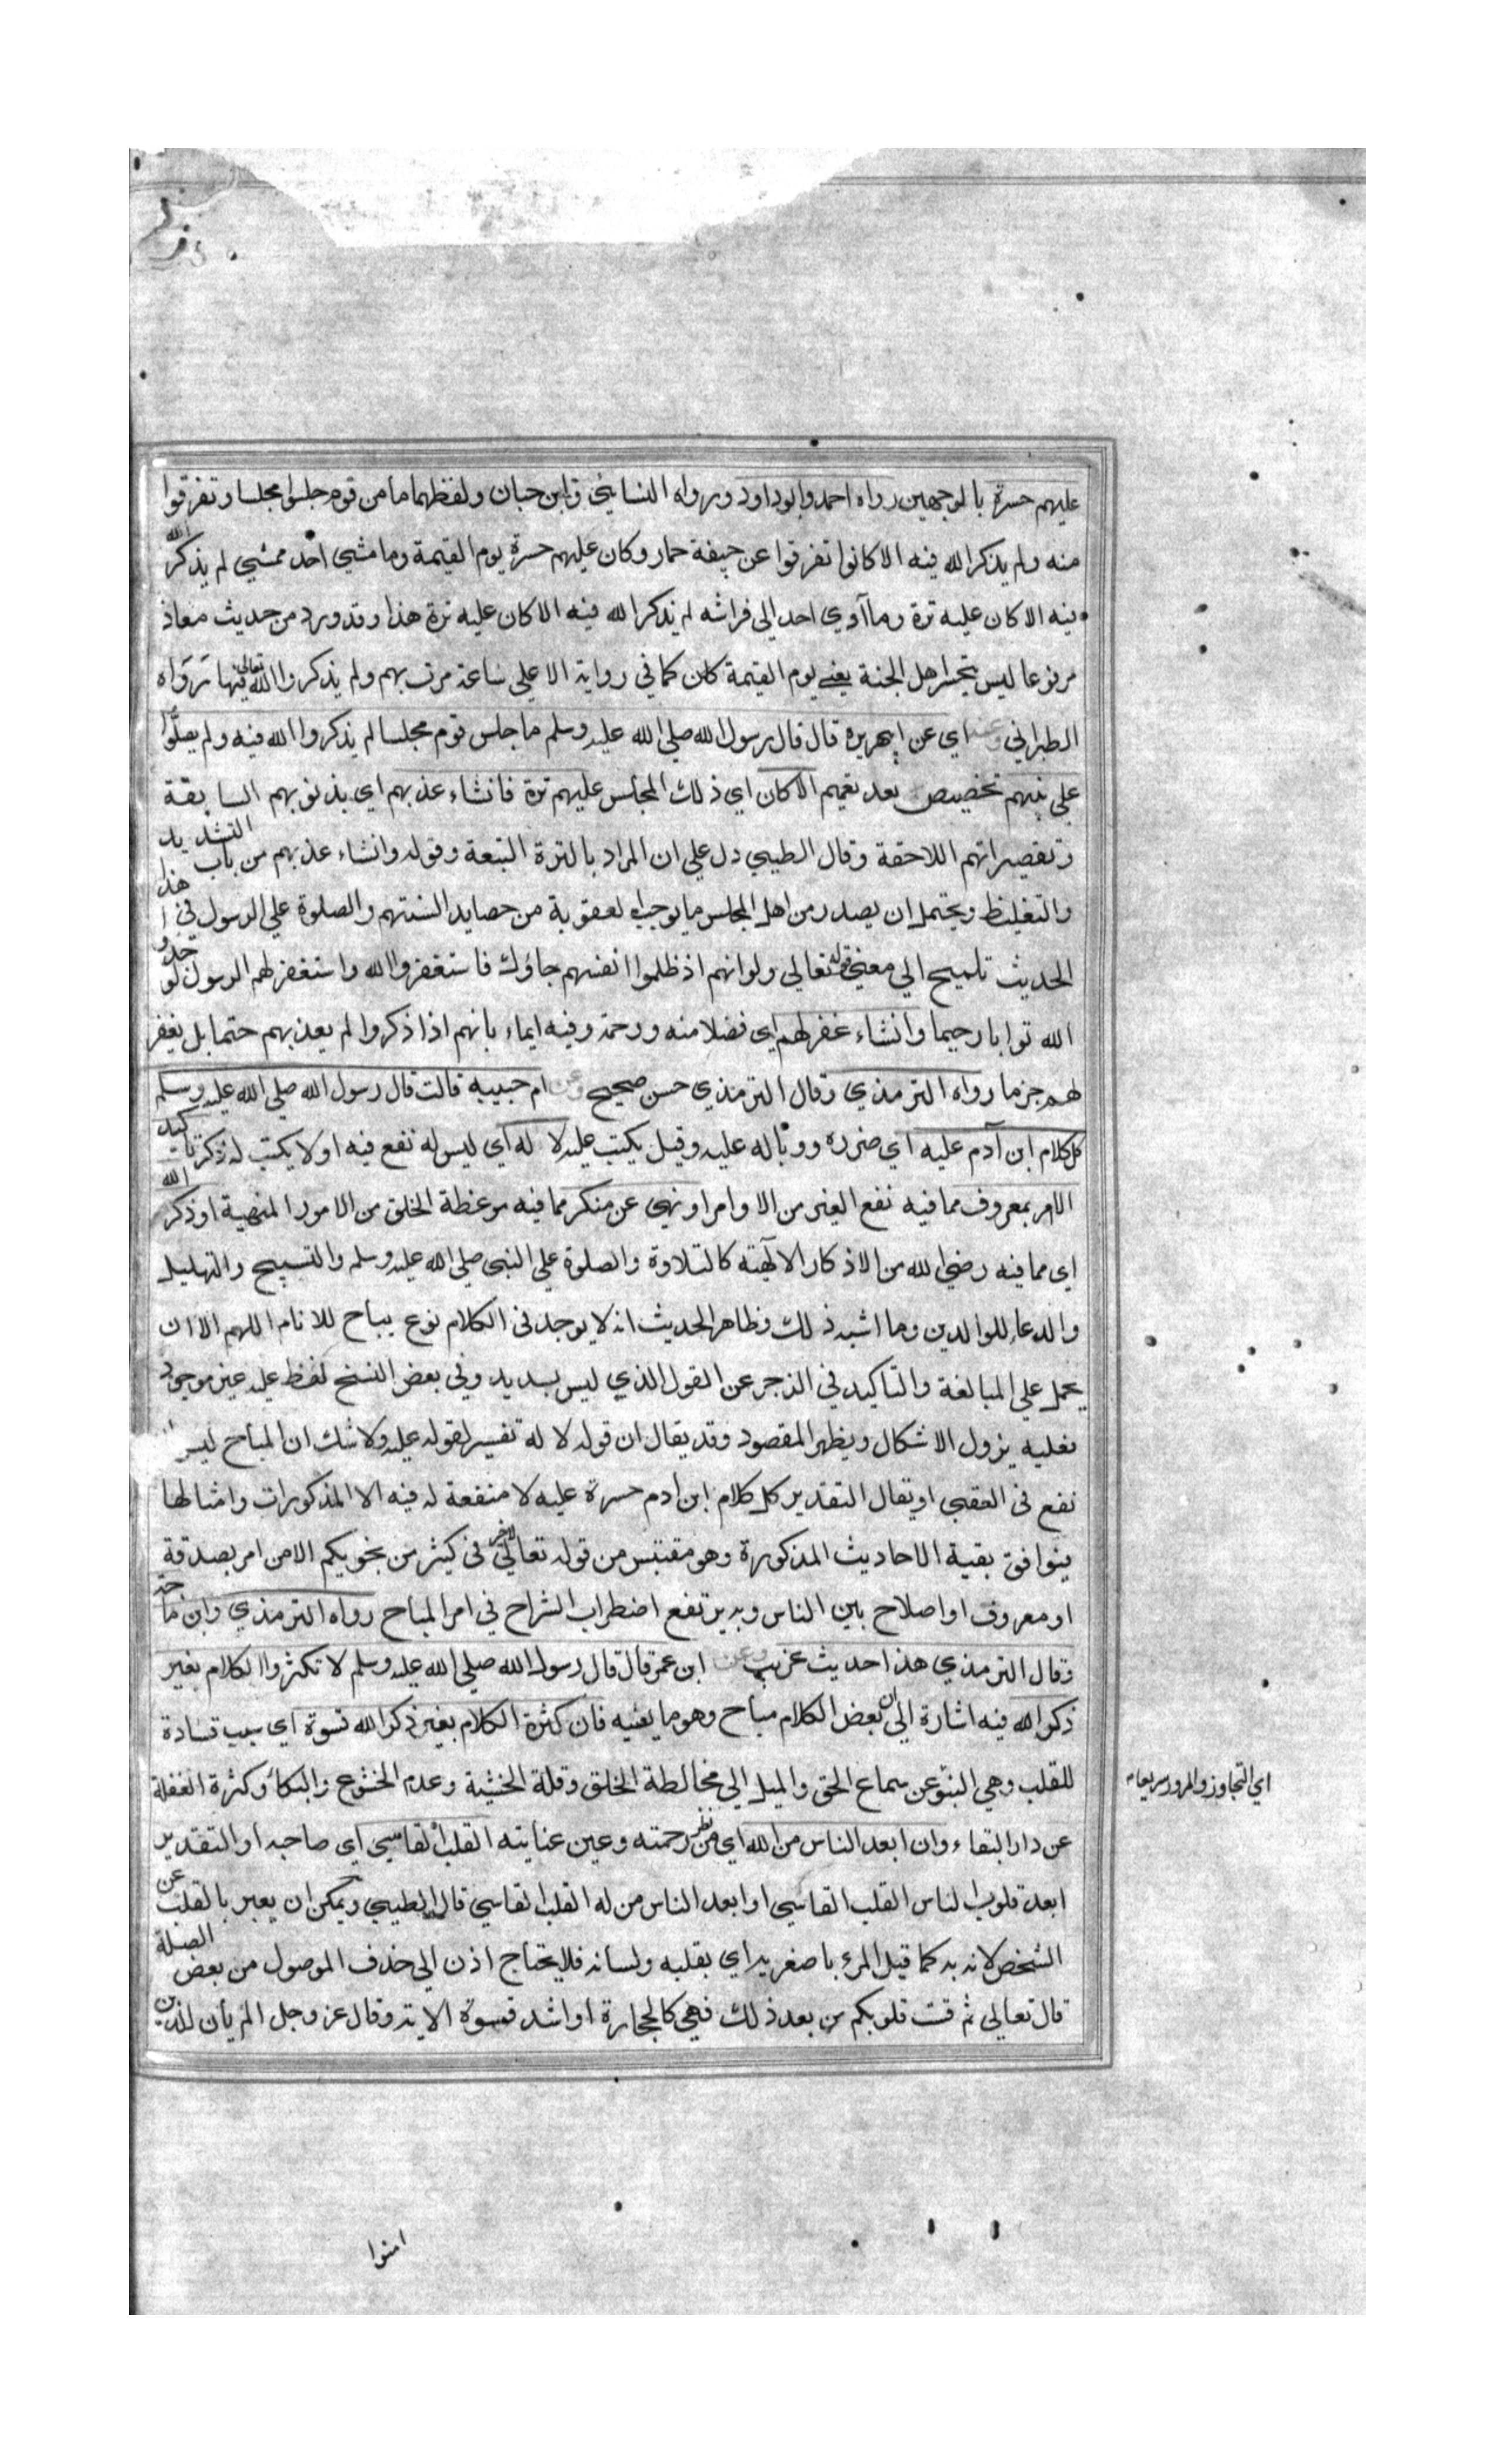 عليهم حسرة بالوجهين رواه احمد وابوداود ورواه النسائي وابن حبان ولفظهما ما من قوم جلسوا مجلسا وتفرقوا
منه ولم يذكر الله فيه الا كانوا تفرقوا عن جيفة حمار وكان عليهم حسرة يوم القيمة وما مشي احد ممشي لم يذكر الله
فيه الا كان عليه ترة وما آوي احد الي فراشه لم يذكر الله فيه الا كان عليه ترة هذا وقد ورد من حديث معاذ
مرفوعا ليس يتحسر اهل الجنة يعني يوم القيمة كان كما في رواية الا علي ساعة مرت بهم ولم يذكروا الله تعالي فيها رواه
الطبراني وعنه اي عن ابي هريره قال قال رسول الله صلي الله عليه وسلم ما جلس قوم مجلسا لم يذكروا الله فيه ولم يصلوا
علي نبيهم تخصيص بعد تعميم الا كان اي ذلك المجلس عليهم ترة فان شاء عذبهم اي بذنوبهم السابقة
وتقصيراتهم اللاحقة وقال الطيبي دل علي ان المراد بالترة التبعة وقوله وان شاء عذبهم من باب التشديد
والتغليظ ويحتمل ان يصدر من اهل المجلس ما يوجب العقوبة من حصايد السنتهم والصلوة علي الرسول في هذا
الحديث تلميح الي معني قوله تعالي ولو انهم اذ ظلموا انفسهم جاؤك فاستغفروا الله واستغفر لهم الرسول لوجدوا
الله توابا رحيما وان شاء غفر لهم اي فضلا منه ورحمة وفيه ايماء بانهم اذا ذكروا لم يعذبهم حتما بل يغفر
لهم جزما رواه الترمذي وقال الترمذي حسن صحيح وعن ام حبيبة قالت قال رسول الله صلي الله عليه وسلم
كل كلام ابن آدم عليه اي ضرره ووباله عليه وقيل يكتب عليه لا له اي ليس له نفع فيه او لا يكتب له ذكر تاكيد
الا امر بمعروف مما فيه نفع الغير من الاوامر او نهي عن منكر مما فيه موعظة الخلق من الامور المنهية او ذكر الله
اي مما فيه رضي الله من الاذكار الالهية كالتلاوة والصلوة علي النبي صلي الله عليه وسلم والتسبيح والتهليل
والدعاء للوالدين وما اشبه ذلك وظاهر الحديث انه لا يوجد في الكلام نوع يباح للانام اللهم الا ان
يحمل علي المبالغة والتاكيد في الزجر عن القول الذي ليس بسديد وفي بعض النسخ لفظ عليه غير موجود
فعليه يزول الاشكال ويظهر المقصود وقد يقال ان قوله لا له تفسير لقوله عليه ولا شك ان المباح ليس
نفع في العقبي او يقال التقدير كل كلام ابن ادم حسرة عليه لا منفعة له فيه الا المذكورات وامثالها
فيوافق بقية الاحاديث المذكورة وهو مقتبس من قوله تعالي لا خير في كثير من نجويكم الا من امر بصدقة
او معروف او اصلاح بين الناس وبه يرتفع اضطراب الشراح في امر المباح رواه الترمذي وابن ماجة
وقال الترمذي هذا حديث غريب وعن ابن عمر قال قال رسول الله صلي الله عليه وسلم لا تكثروا الكلام بغير
ذكر الله فيه اشارة الي ان بعض الكلام مباح وهو ما يعنيه فان كثرة الكلام بغير ذكر الله قسوة اي سبب قساوة
للقلب وهي النبو عن سماع الحق والميل الي مخالطة الخلق وقلة الخشية وعدم الخشوع والبكاء وكثرة الغفلة
عن دار البقاء وان ابعد الناس من الله اي من نظر رحمته وعين عنايته القلب القاسي اي صاحبه او التقدير
ابعد قلوب الناس القلب القاسي او ابعد الناس من له القلب القاسي قال الطيبي ويمكن ان يعبر بالقلب عن
الشخص لانه به كما قيل المرء باصغريه اي بقلبه ولسانه فلا يحتاج اذن الي حذف الموصول من بعض الصلة
قال تعالي ثم قست قلوبكم من بعد ذلك فهي كالحجارة او اشد قسوة الاية وقال عز وجل الم يأن للذين
اي التجاوز والمرور سريعا
امنوا